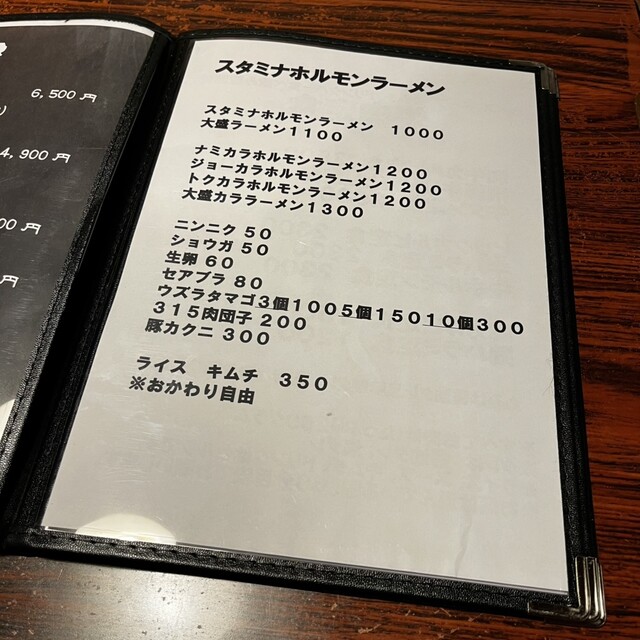 6,500円
4,900円
00円
円
スタミナホルモンラーメン
スタミナホルモンラーメン　1000
大盛ラーメン1100
ナミカラホルモンラーメン1200
ジョーカラホルモンラーメン1200
トクカラホルモンラーメン1200
大盛カララーメン1300
ニンニク 50
ショウガ 50
生卵 60
セアブラ 80
ウズラタマゴ3個100 5個150 10個300
315肉団子 200
豚カクニ 300
ライス　キムチ　350
※おかわり自由